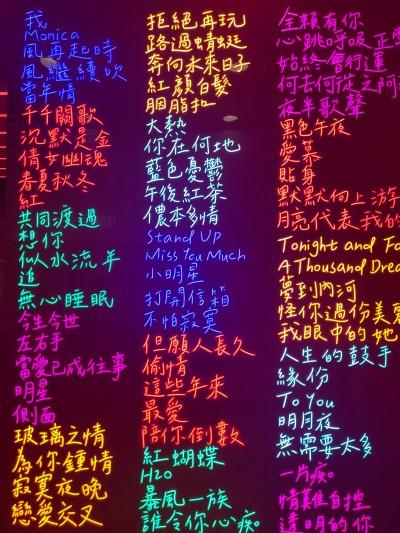 我
Monica
風再起時
風繼續吹
當年情
千千闕歌
沉默是金
倩女幽魂
春夏秋冬
紅
共同渡過
想你
似水流年
追
無心睡眠
今生今世
左右手
當愛已成往事
明星
側面
玻璃之情
為你鍾情
寂寞夜晚
戀愛交叉
拒絕再玩
路過蜻蜓
奔向未來日子
紅顏白髮
胭脂扣
大熱
你在何地
藍色憂鬱
午後紅茶
儂本多情
Stand Up
Miss You Much
小明星
打開信箱
不怕寂寞
但願人長久
偷情
這些年來
最愛
陪你倒數
紅蝴蝶
H2O
暴風一族
誰令你心痴
全賴有你
心跳呼吸正
始終會行運
何去何從之阿
夜半歌聲
黑色午夜
愛慕
貼身
默默向上游
月亮代表我的
Tonight and Fo
A Thousand Drea
夢到內河
怪你過份美
我眼中的她
人生的鼓手
緣份
To You
明月夜
無需要太多
一片痴
情難自控
透明的你